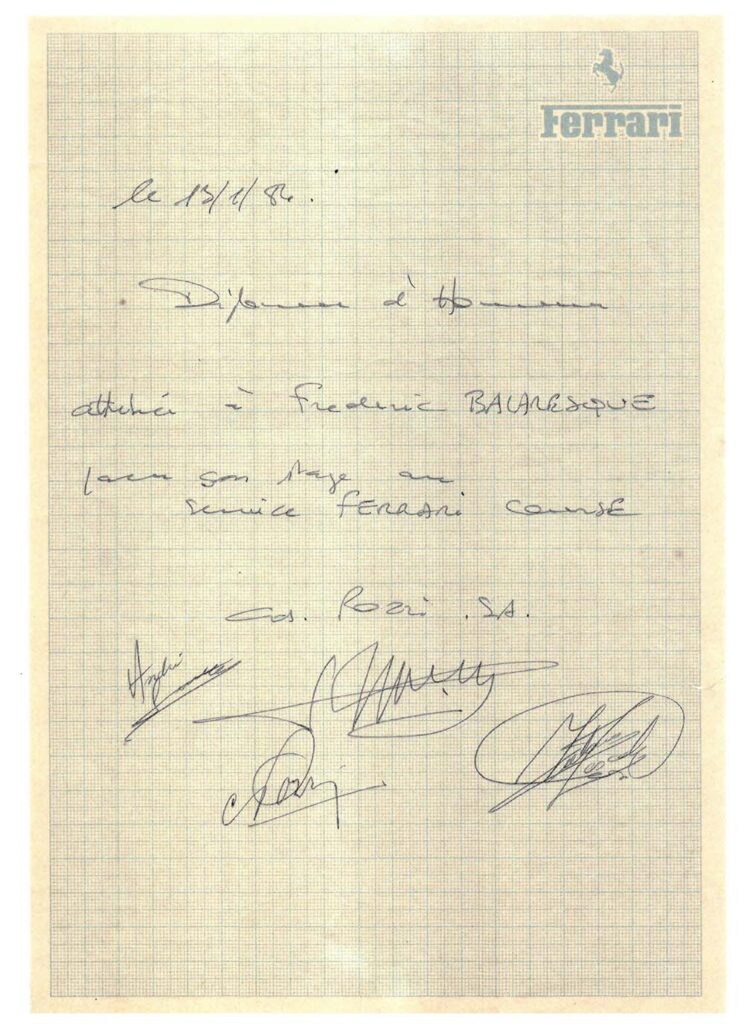 Ferrari
le 13/1/84.
Diplome d'Honneur
attribué à Frederic BALARESQUE
pour son stage au
service FERRARI COURSE
Ch. Pozzi .SA.
C Pozzi